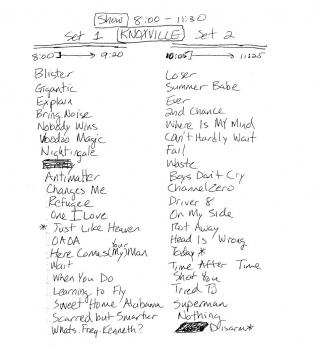 Show 8:00 - 11:30
Set 1 KNOXVILLE Set 2
8:00 → 9:20
Blister
Gigantic
Explain
Bring Noise
Nobody Wins
Voodoo Magic
Nightingale
Antimatter
Changes Me
Refugee
One I Love
* Just Like Heaven
OAOA
Here Comes Your Man
Wait
When You Do
Learning to Fly
Sweet Home Alabama
Scarred but Smarter
Whats. Freq. Kenneth?
10:05 → 11:25
Loser
Summer Babe
Ever
2nd Chance
Where Is My Mind
Can't Hardly Wait
Fall
Waste
Boys Don't Cry
Channel Zero
Driver 8
On My Side
Rot Away
Head Is Wrong
Today *
Time After Time
Shot You
Tried To
Superman
Nothing
Disarm *